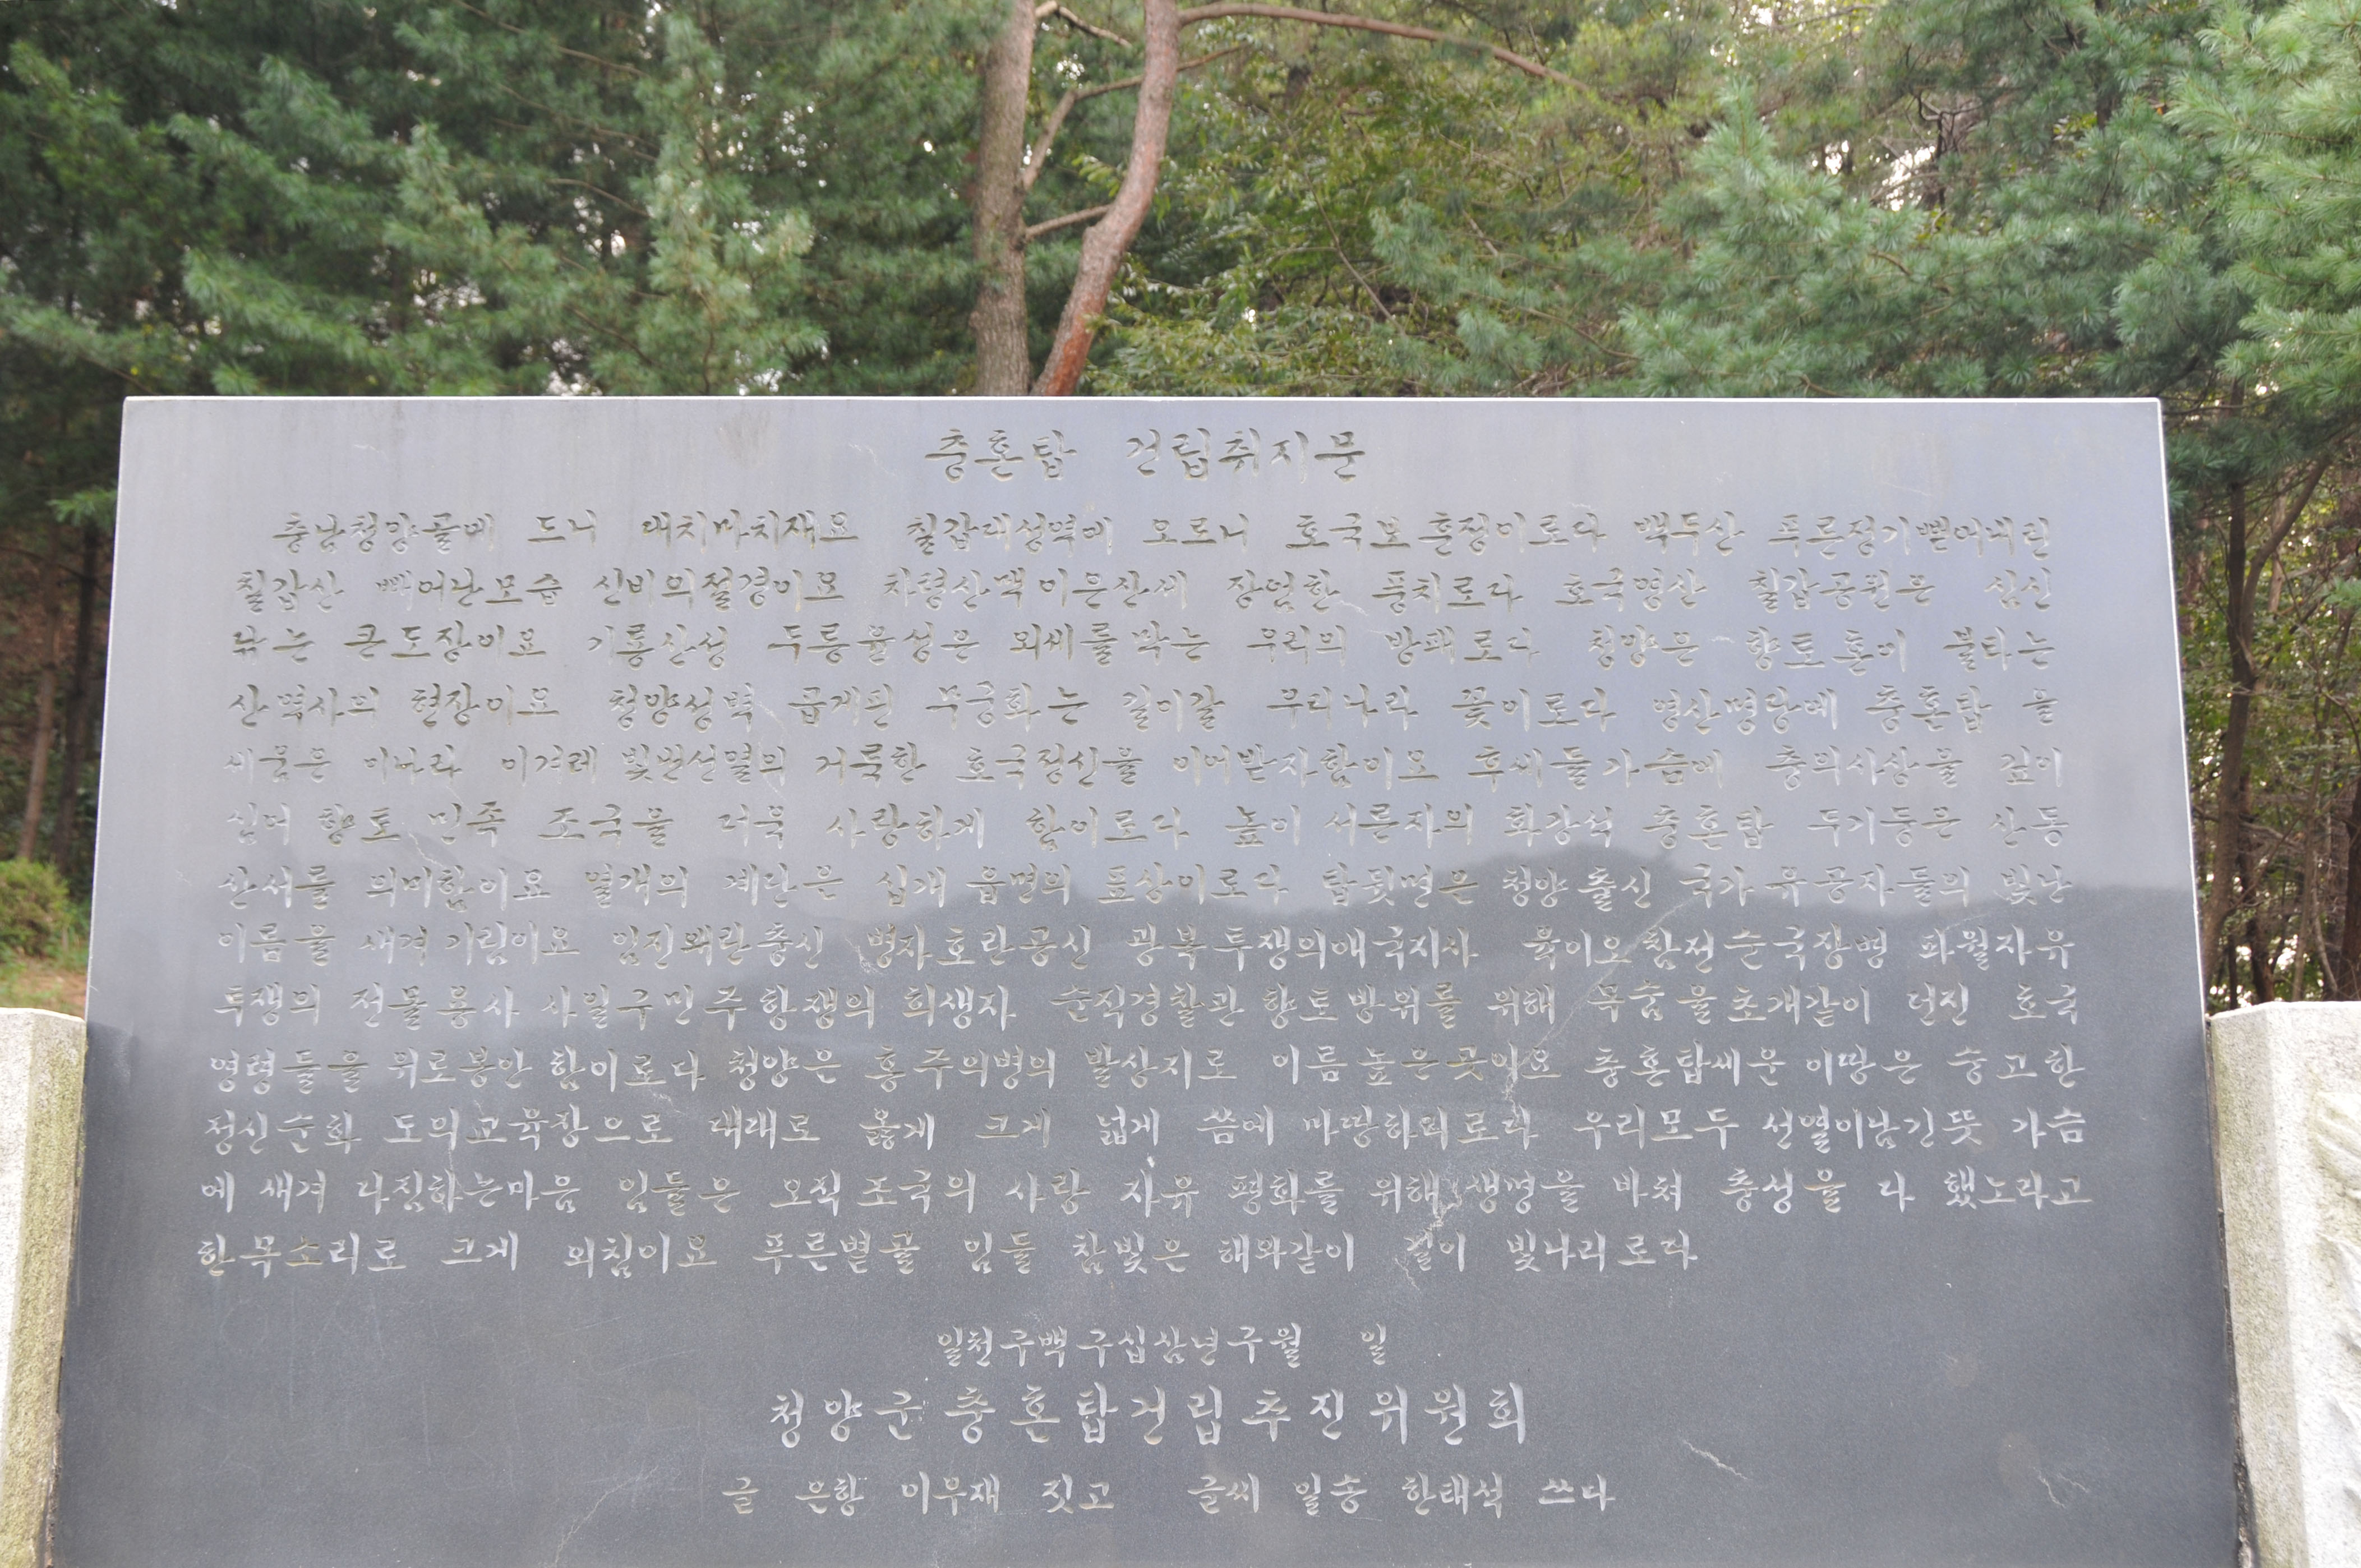 충혼탑 건립취지문
충남청양골에 드니 대치마치재요 칠갑대성역에 모로니 호국보훈정이로다 백두산 푸른정기뻗어내린
칠갑산 빼어난모습 신비의절경이요 차령산맥이은산세 장엄한 풍치로다 호국명산 칠갑공원은 심신
닦는 큰도장이요 기룡산성 두릉윤성은 외세를막는 우리의 방패로다 청양은 향토혼이 불타는
산역사의 현장이요 청양성벽 곱게핀 무궁화는 길이갈 우리나라 꽃이로다 명산명당에 충혼탑 을
세움은 이나라 이겨레 빛낸선열의 거룩한 호국정신을 이어받자함이요 후세들가슴에 충의사상을 깊이
심어 향토 민족 조국을 더욱 사랑하게 함이로다 높이 서른자의 화강석 충혼탑 두기둥은 산동
산서를 의미함이요 열개의 계단은 십개 읍면의 표상이로다 탑뒷면은 청양출신 국가유공자들의 빛난
이름을 새겨기림이요 임진왜란충신 병자호란공신 광복투쟁의애국지사 육이오참전순국장병 파월자유
투쟁의 전몰용사 사일구민주항쟁의 희생자 순직경찰관 향토방위를 위해 목숨을초개같이 던진 호국
영령들을 위로봉안 함이로다 청양은 홍주의병의 발상지로 이름높은곳이요 충혼탑세운이땅은 숭고한
정신순화 도의교육장으로 대대로 옳게 크게 넓게 씀에 마땅하리로다 우리모두 선열이남긴뜻 가슴
에 새겨 다짐하는마음 임들은 오직조국의 사랑 자유 평화를 위해 생명을 바쳐 충성을 다 했노라고
한목소리로 크게 외침이요 푸른볕골 임들 참빛은 해와같이 길이 빛나리로다
일천구백구십삼년구월 일
청양군충혼탑건립추진위원회
글 은항 이우재 짓고 글씨 일송 한태석 쓰다